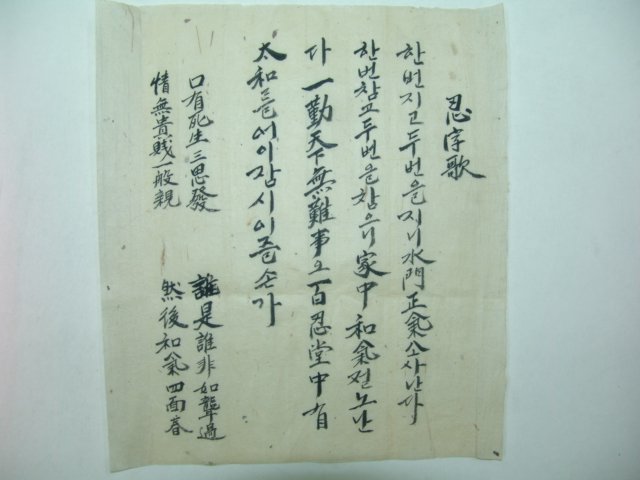 忍字歌
한번지고두번을지니水門正氣소사난다
한번참고두번을참으니家中和氣절노난
다一勤天下無難事오百忍堂中有
太和를어이잠시이즐손가
口有死生三思發
情無貴賤一般親
誰是誰非如聾過
然後和氣四面春